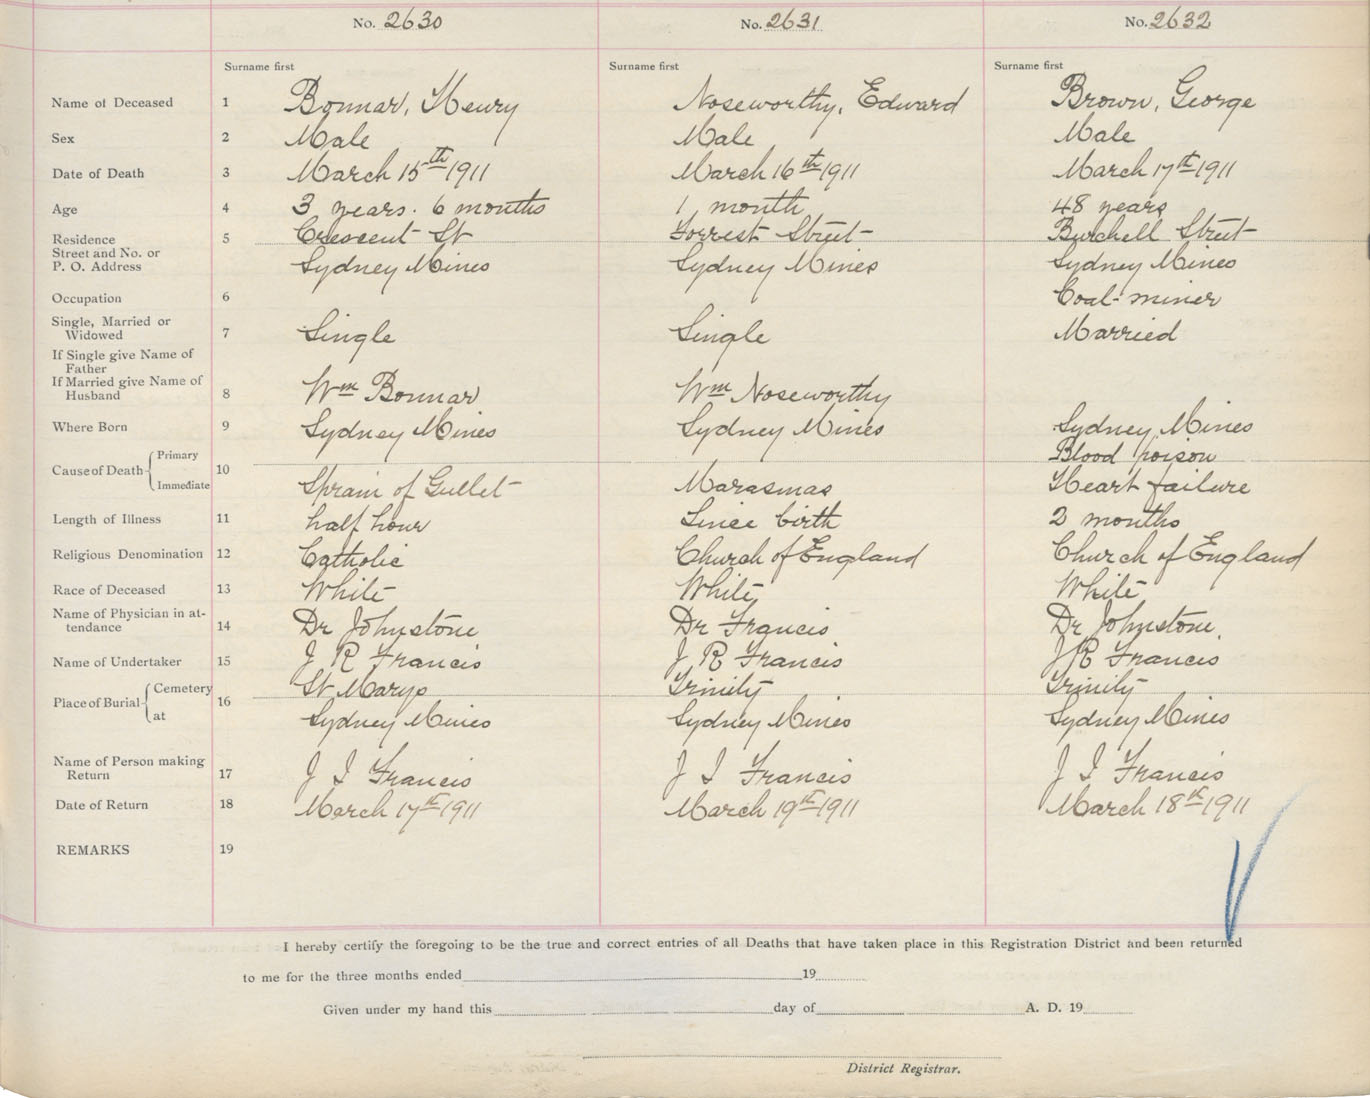 No. 2630 No. 2631 No. 2632
Surname first Surname first Surname first
Name of Deceased 1 Bonnar, Henry Noseworthy, Edward Brown, George
Sex 2 Male Male Male
Date of Death 3 March 15th 1911 March 16th 1911 March 17th 1911
Age 4 3 years. 6 months 1 month 48 years
Residence 5 Crescent St Forrest Street Burchell Street
Street and No. or
P. O. Address Sydney Mines Sydney Mines Sydney Mines
Occupation 6 Coal-miner
Single, Married or
Widowed 7 Single Single Married
If Single give Name of
Father
If Married give Name of
Husband 8 Wm Bonnar Wm Noseworthy
Where Born 9 Sydney Mines Sydney Mines Sydney Mines
Primary Blood poison
Cause of Death 10
Immediate Sprain of Gullet Marasmas Heart failure
Length of Illness 11 half hour Since birth 2 months
Religious Denomination 12 Catholic Church of England Church of England
Race of Deceased 13 White White White
Name of Physician in at-
tendance 14 Dr Johnstone Dr Francis Dr Johnstone
Name of Undertaker 15 J R Francis J R Francis J R Francis
Cemetery St Marys Trinity Trinity
Place of Burial 16
at Sydney Mines Sydney Mines Sydney Mines
Name of Person making
Return 17 J I Francis J I Francis J I Francis
Date of Return 18 March 17th 1911 March 19th 1911 March 18th 1911
REMARKS 19
I hereby certify the foregoing to be the true and correct entries of all Deaths that have taken place in this Registration District and been returned
to me for the three months ended 19
Given under my hand this day of A. D. 19
District Registrar.